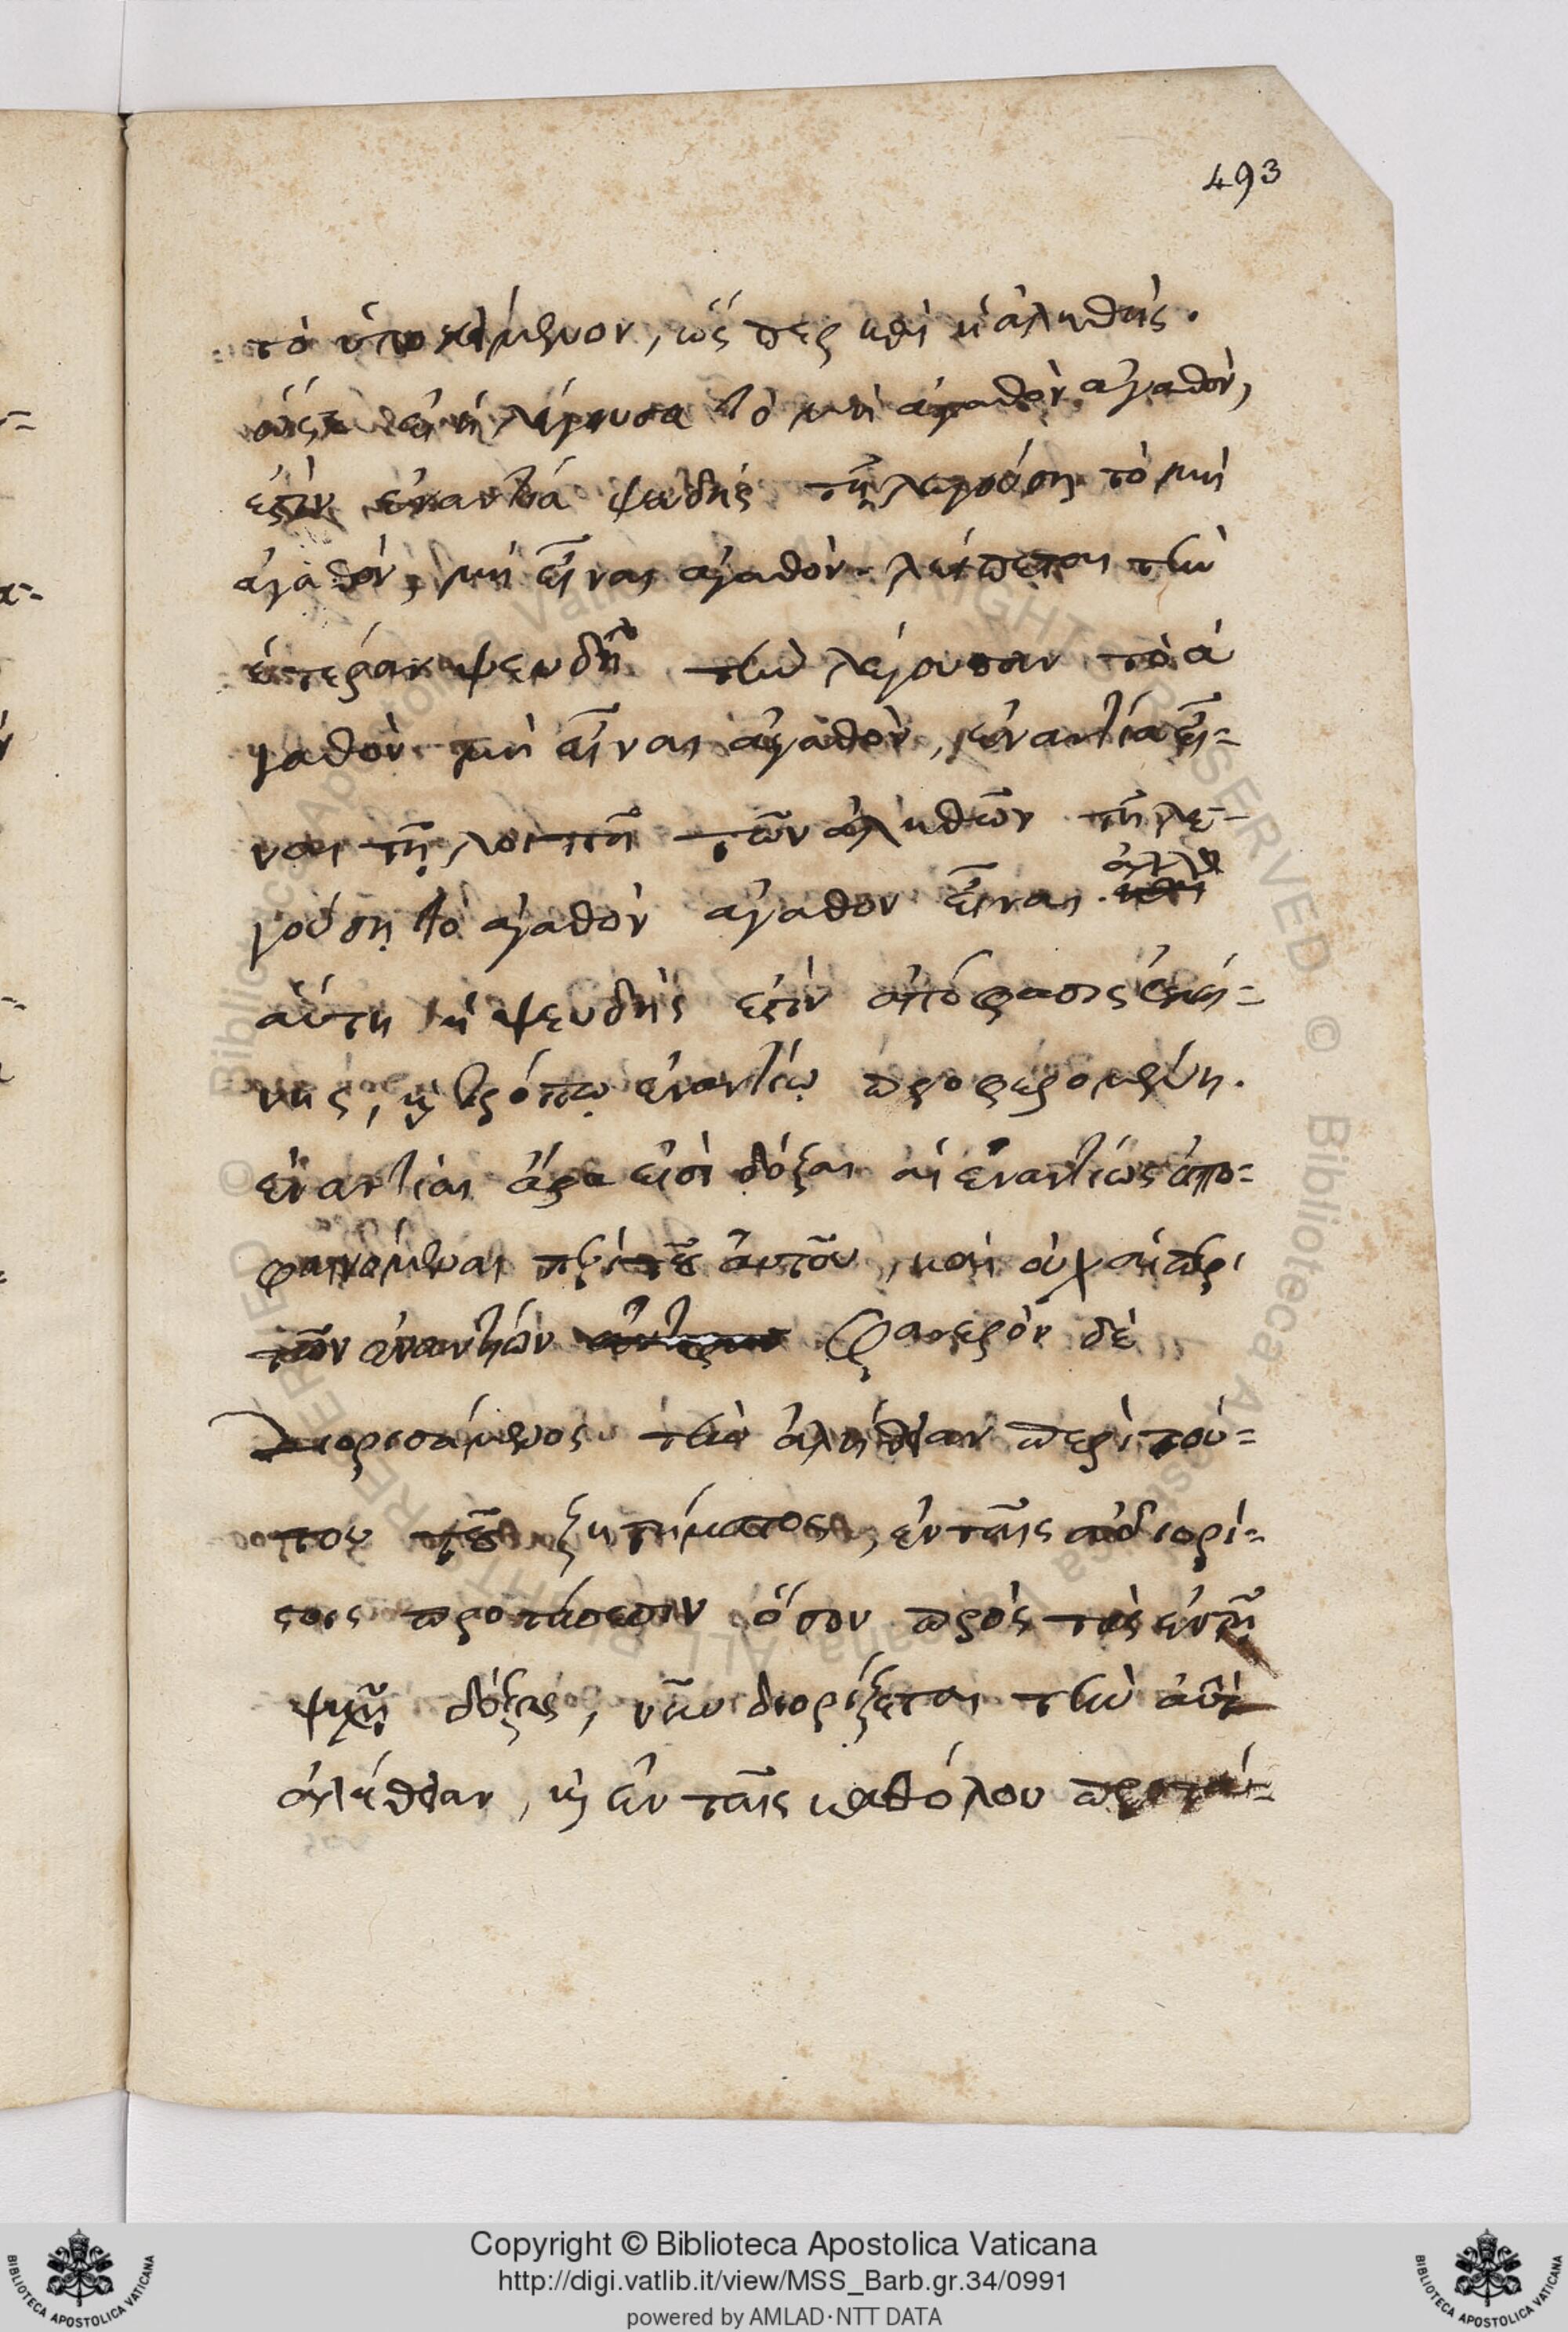 493
τὸ ὑποκείμενον, ὥς περ καὶ ἡ ἀληθής.
ὥστε εἰ ἡ λέγουσα τὸ μὴ ἀγαθὸν ἀγαθὸν,
ἐστὶν ἐναντία ψευδὴς τῇ λεγούσῃ τὸ μὴ
ἀγαθὸν, μὴ εἶναι ἀγαθὸν. λείπεται τὴν
ἑτέραν ψευδῆ τὴν λέγουσαν τὸ ἀ
γαθὸν μὴ εἶναι ἀγαθὸν, ἐναντία εἶ=
ναι τῇ λοιπῇ τῶν ἀληθῶν τῇ λε=
γούσῃ τὸ ἀγαθὸν ἀγαθον εἶναι. ἀλλὰ
αὕτη ἡ ψευδής ἐστὶν ἀπόφασις ἐκεί=
νης, καὶ τρόπῳ ἐναντίῳ προφερομένη.
ἐναντίαι ἄρα εἰσὶ δόξαι αἱ ἐναντίως ἀπο=
φαινόμεναι περὶ τοῦ αὐτοῦ, καὶ οὐχ αἱ περὶ
τῶν ἐναντίων Φανερὸν δὲ
Διορισάμενος τὴν ἀλήθειαν περὶ τού=
του τοῦ ζητήματος, ἐν ταῖς ἀδιορί=
στοις προτάσεσιν ὅσον πρὸς τὰς ἐν τῇ
ψυχῇ δόξας, νῦν διορίζεται τὴν αὐτὴν
ἀλήθειαν, καὶ ἐν ταῖς καθόλου προτά=
Copyright © Biblioteca Apostolica Vaticana
http://digi.vatlib.it/view/MSS_Barb.gr.34/0991
powered by AMLAD·NTT DATA
BIBLIOTECA APOSTOLICA VATICANA
BIBLIOTECA APOSTOLICA VATICANA